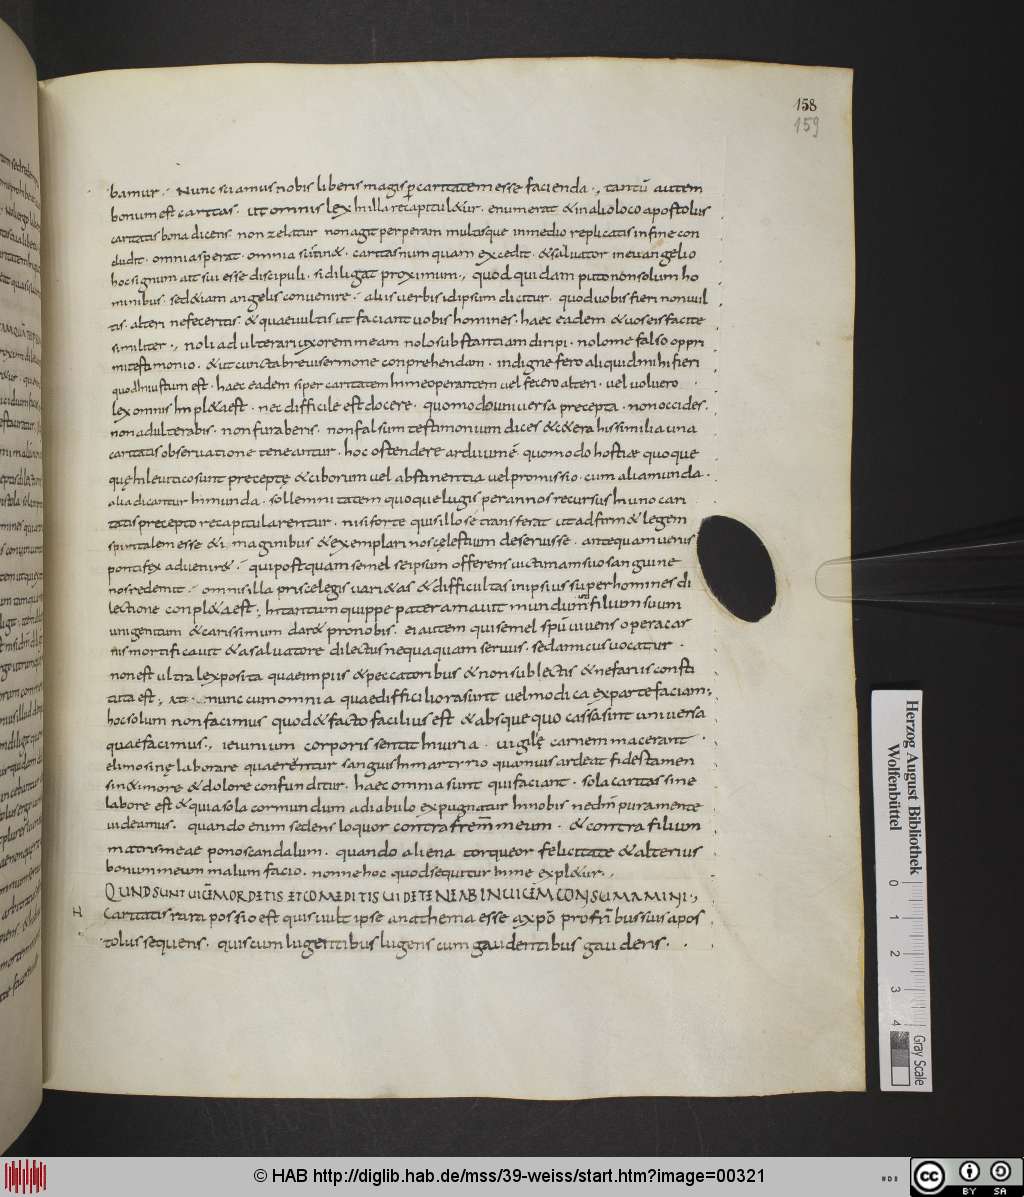 158
159
bamur · Nunc sciamus nobis liberis magis p caritatem esse facienda ., tantū autem
bonum est caritas · ut omnis lex in illa recapitul&ur · enumerat & in alio loco apostolus
caritatis bona dicens · non zelatur non agit perperam multisque in medio replicatis in fine con
cludit · omnia sperat · omnia sustin& · caritas numquam excedit · & saluator in euangelio
hoc signum ait sui esse discipuli · si diligat proximum ., quod quidam puto non solum ho
minibus · sed &iam angelis conuenire · aliis uerbis idipsum dicitur · quod uobis fieri non uul
tis · alteri ne feceritis · & quae uultis ut faciant uobis homines · haec eadem & uos eis facite
similiter ., noli adulterari uxorem meam nolo substantiam diripi · nolo me falso oppri
mi testimonio · & ut cuncta breui sermone conprehendam · indigne fero aliquid mihi fieri
quod iniustum est · haec eadem si per caritatem in me operantem uel fecero alteri · uel uoluero
lex omnis inpl&a est · nec difficile est docere · quomodo uniuersa precepta · non occides ·
non adulterabis · non furaberis · non falsum testimonium dices & c&era his similia una
caritatis obseruatione teneantur · hoc ostendere arduum ē quomodo hostiae quoque
quę in leuitico sunt preceptę & ciborum uel abstinentia uel promissio · cum alia munda ·
alia dicantur inmunda · sollemnitatem quoque iugis per annos recursus in uno cari
tatis precepto recapitularentur · nisi forte qui s illo se transferat ut adfirm& legem
spiritalem esse & imaginibus & exemplari nos cęlestium deseruisse · antequam uerus
pontifex aduenir& · qui postquam semel se ipsum offerens uictimam suo sanguine
nos redemit · omnis illa priscę legis uari&as & difficultas in ipsius super homines di
lectione conpl&a est ; in tantum quippe pater amauit mundum ut filium suum
unigenitum & carissimum dar& pro nobis · ei autem qui semel spū uiuens opera car
nis mortificauit & a saluatore dilectus nequaquam seruus · sed amicus uocatur ·
non est ultra lex posita quae impiis & peccatoribus & non subiectis & nefariis consti
tuta est ;        nunc cum omnia quae difficiliora sunt uel modica ex parte faciam;
hoc solum non facimus quod & facto facilius est & absque quo cassa sunt uniuersa
quae facimus ., ieiunium corporis sentit iniuria · uigilę carnem macerant ·
elimosinę labore quaerentur sanguis in martyrio quamuis ardeat fides tamen
sine timore & dolore confunditur · haec omnia sunt qui faciant · sola caritas sine
labore est & quia sola cor mundum a diabulo expugnatur in nobis ne dm̄ pura mente
uideamus · quando enim sedens loquor contra frem̄ meum · & contra filium
matris meae pono scandalum · quando aliena torqueor felicitate & alterius
bonum meum malum facio · nonne hoc quod sequitur in me expl&ur .,
QUOD SI INUICĒ MORDETIS ET COMEDITIS UIDETE NE AB INUICĒM CONSUMAMINI .,
Caritatis rara possio est quis uult ipse anathema esse a xp̄o pro frīb suis apos
tolus sequens · quis cum lugentibus lugens cum gaudentibus gaudens ·
Herzog August Bibliothek
Wolfenbüttel
0 1 2 3 4
Gray Scale
© HAB http://diglib.hab.de/mss/39-weiss/start.htm?image=00321
cc BY SA